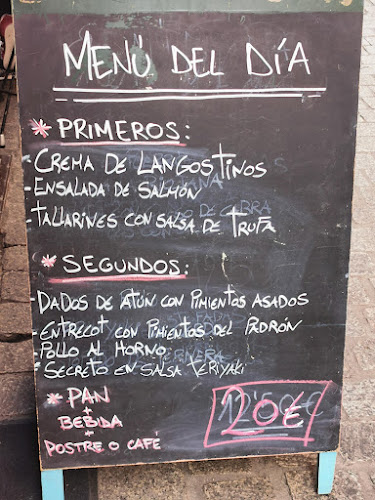 MENÚ DEL DÍA
* PRIMEROS:
- CREMA DE LANGOSTINOS
- ENSALADA DE SALMÓN
- TALLARINES CON SALSA DE TRUFA
* SEGUNDOS:
- DADOS DE ATÚN CON PIMIENTOS ASADOS
- ENTRECOT CON PIMIENTOS DEL PADRÓN
- POLLO AL HORNO
* SECRETO EN SALSA YERIYAKI
* PAN
+
BEBIDA
+
POSTRE O CAFÉ
20€